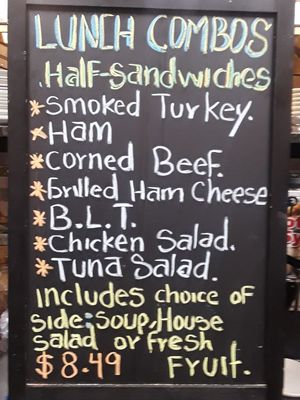 LUNCH COMBOS
Half-Sandwiches
*Smoked Turkey.
*Ham
*Corned Beef.
*Grilled Ham Cheese
*B.L.T.
*Chicken Salad.
*Tuna Salad.
includes choice of
side; soup, House
salad or fresh
$8.49 Fruit.